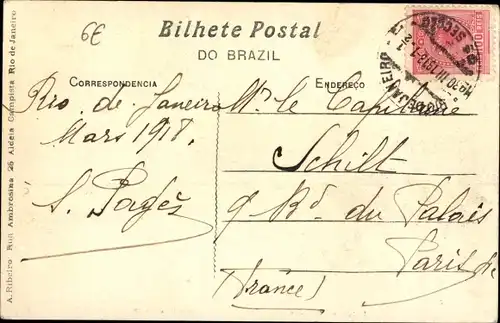 6E
Bilhete Postal
DO BRAZIL
CORRESPONDENCIA
ENDEREÇO
Rio de Janeiro
Mars 1918.
S. Pagès
Mr. le Capitaine
Schilt
9 Bd. du Palais
Paris
(France)
A. Ribeiro Rua Ambrosina 25 Aldeia Campista Rio de Janeiro
100 REIS